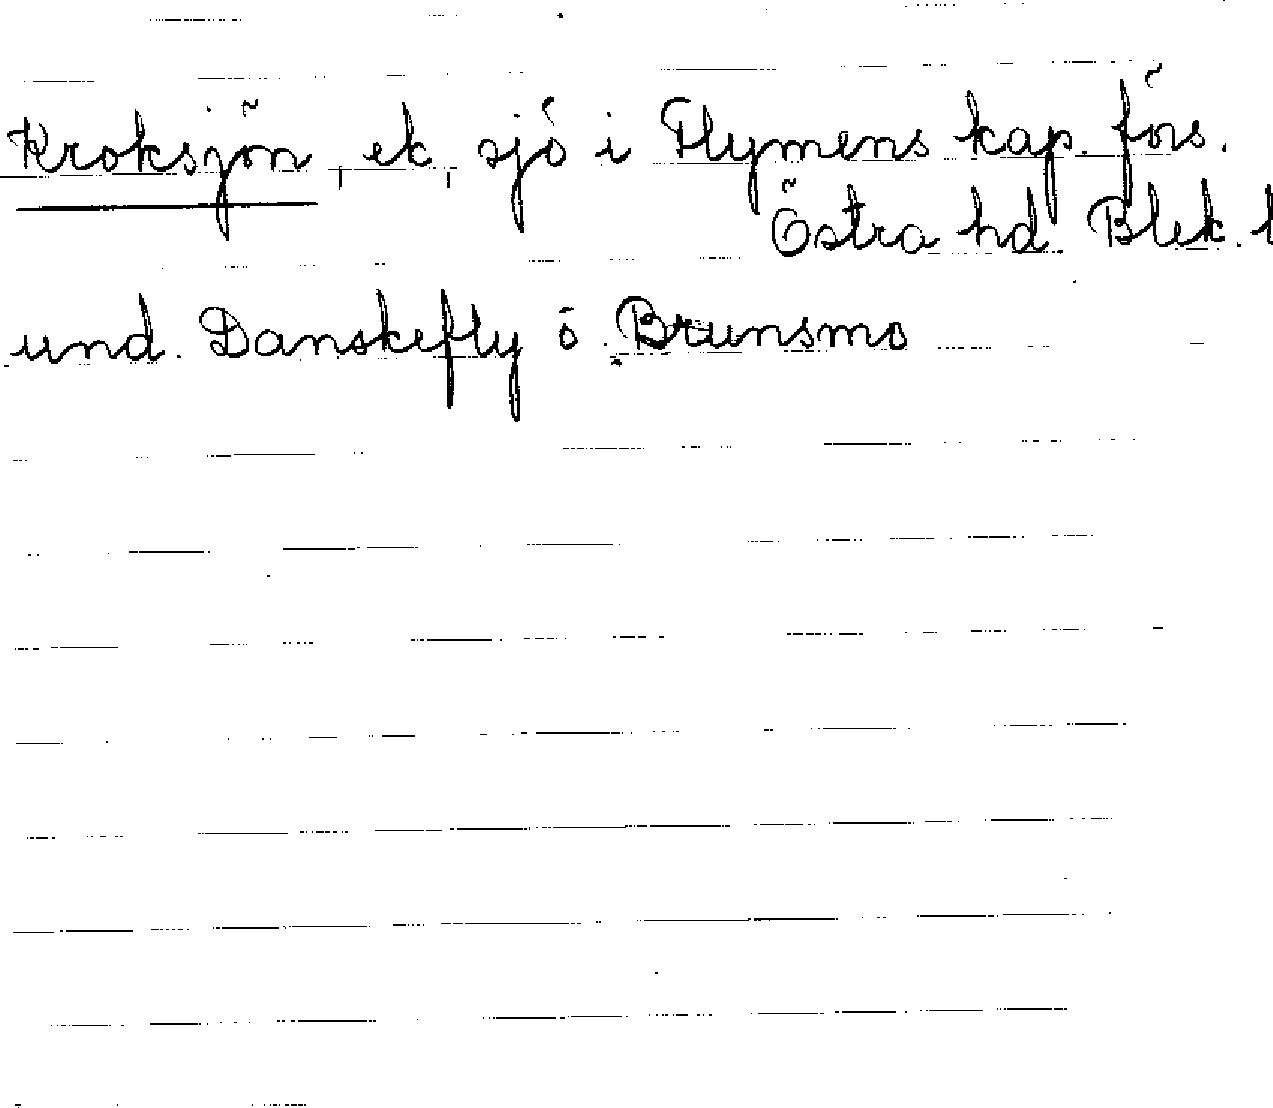 Kroksjön, ek, sjö i Flymens kap. förs.
Östra hd. Blek. l
und. Danskefly o. Brunsmo